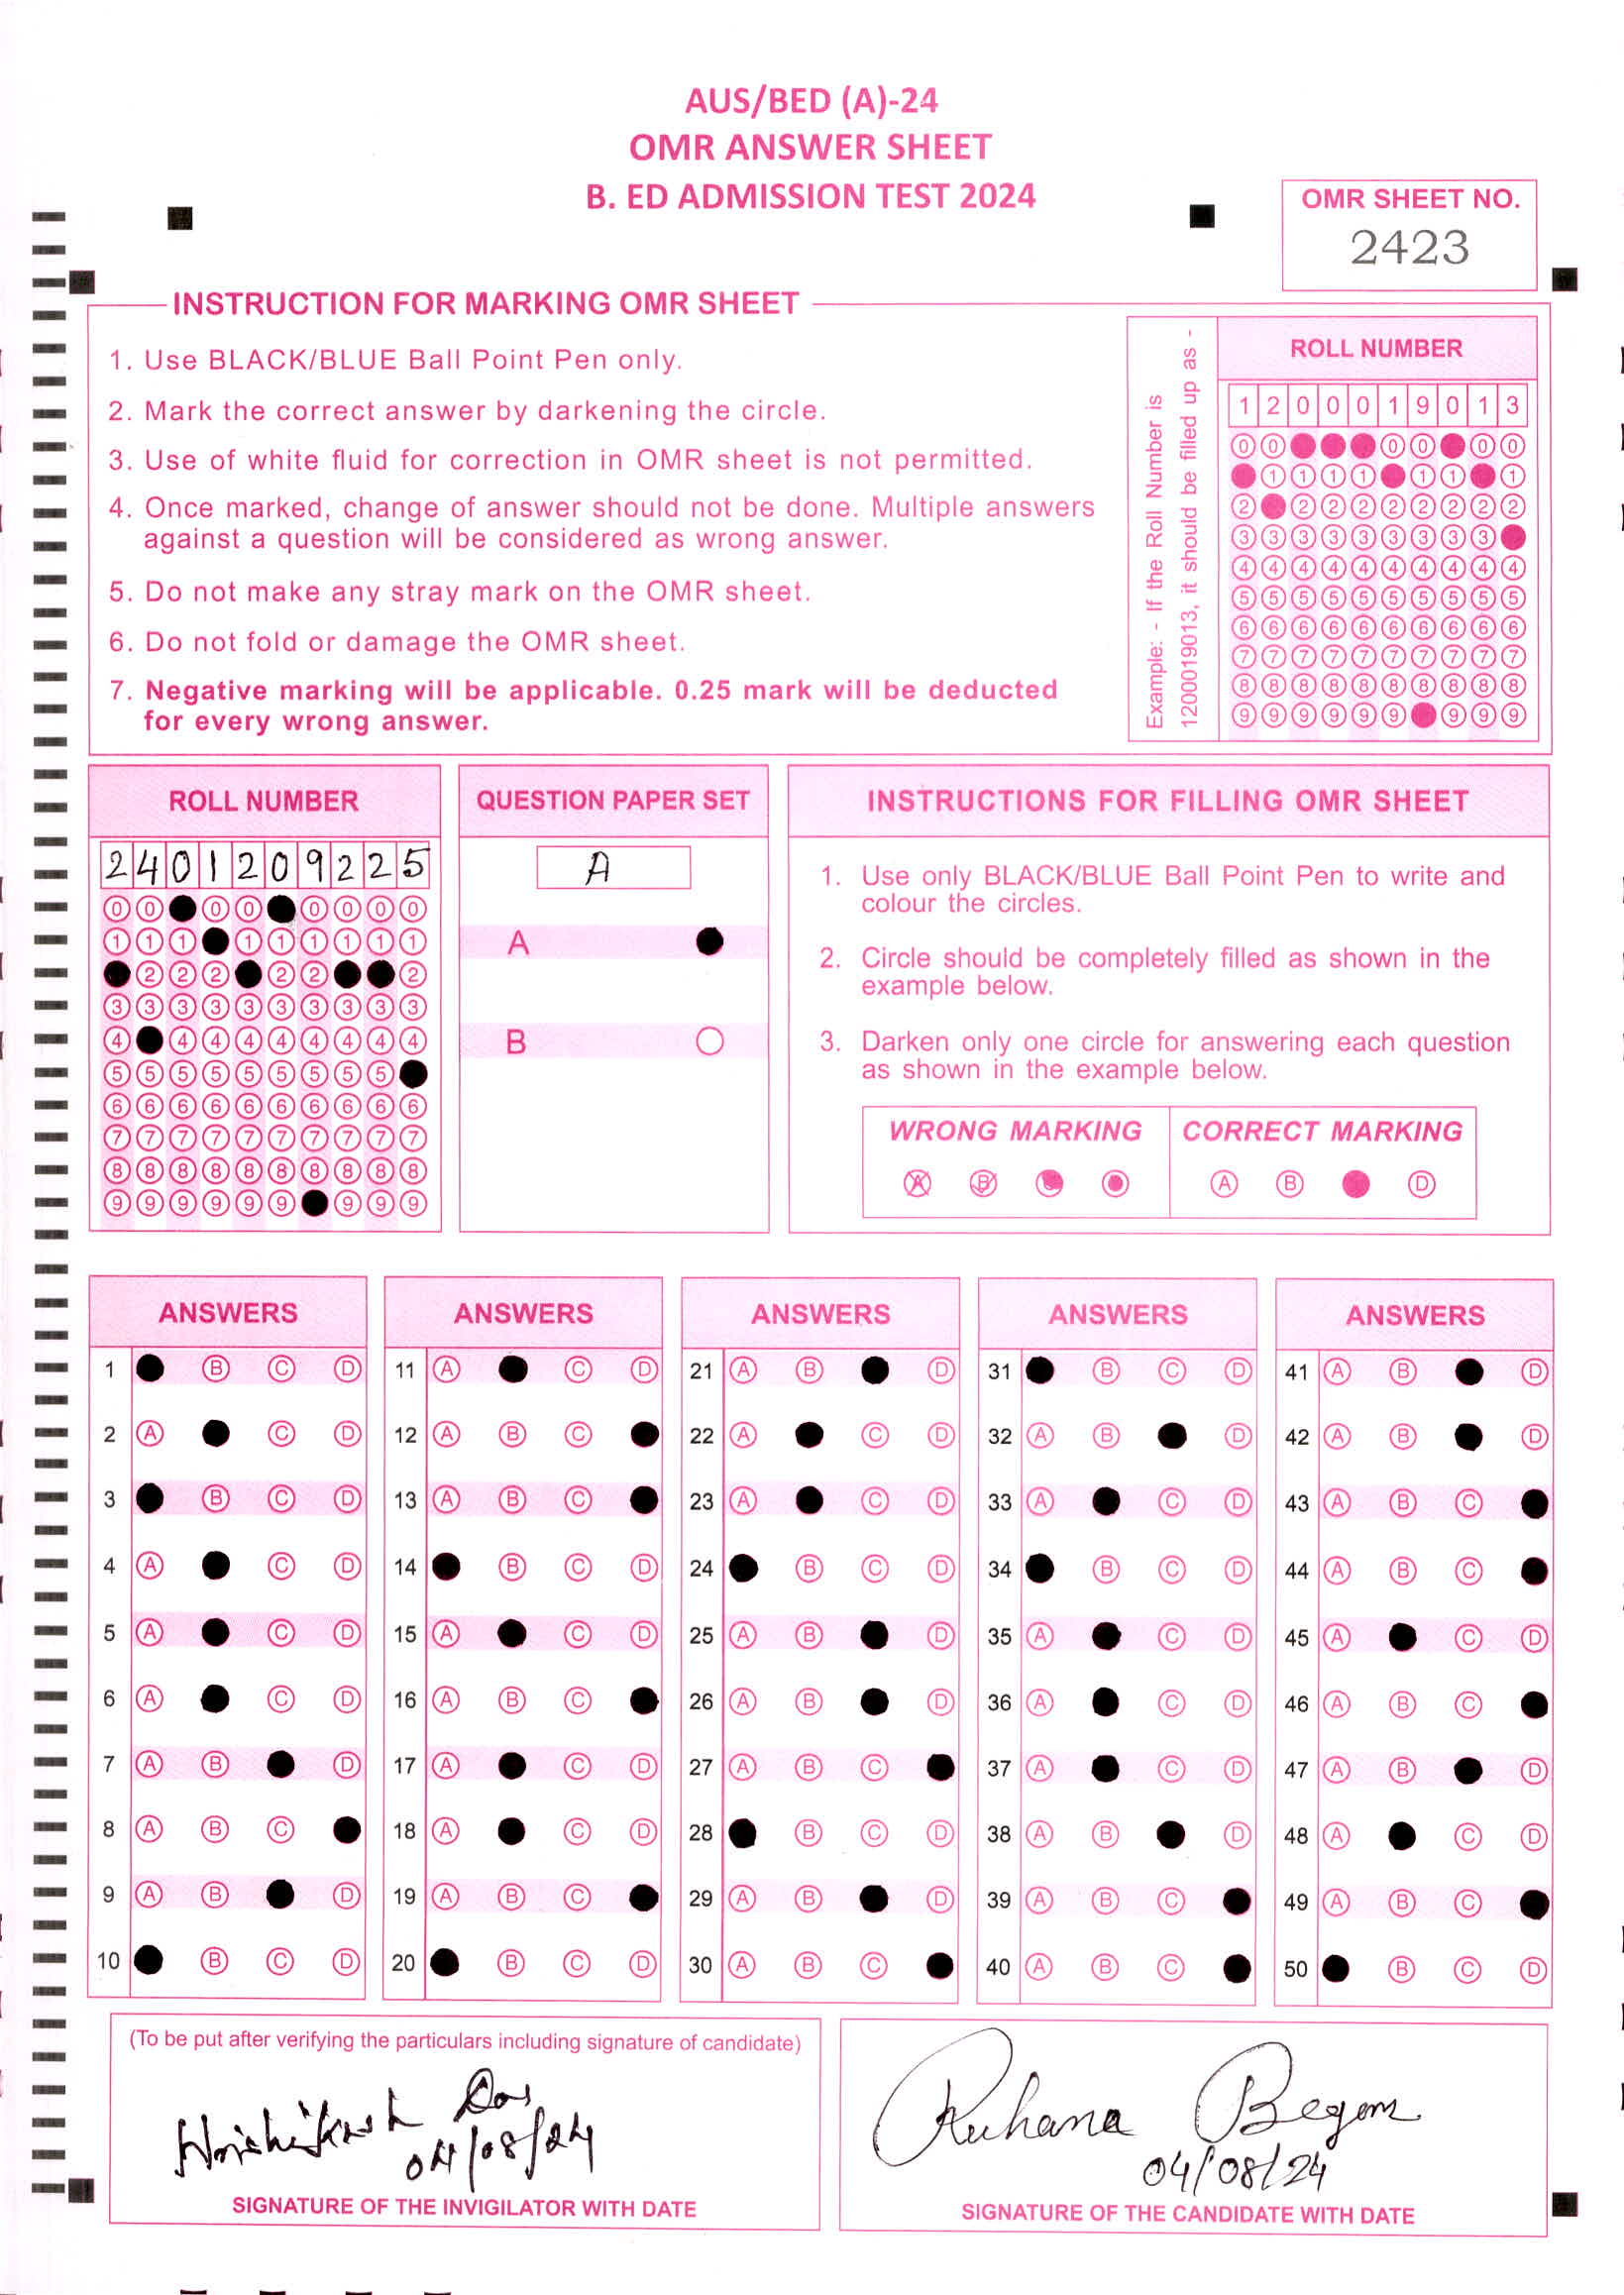 AUS/BED (A)-24
OMR ANSWER SHEET
B. ED ADMISSION TEST 2024
OMR SHEET NO.
2423
INSTRUCTION FOR MARKING OMR SHEET
1. Use BLACK/BLUE Ball Point Pen only.
2. Mark the correct answer by darkening the circle.
3. Use of white fluid for correction in OMR sheet is not permitted.
4. Once marked, change of answer should not be done. Multiple answers
against a question will be considered as wrong answer.
5. Do not make any stray mark on the OMR sheet.
6. Do not fold or damage the OMR sheet.
7. Negative marking will be applicable. 0.25 mark will be deducted
for every wrong answer.
Example: - If the Roll Number is
1200019013, it should be filled up as -
ROLL NUMBER
1 2 0 0 0 1 9 0 1 3
0 0 0 0 0 0
1 1 1 1 1 1 1
2 2 2 2 2 2 2 2 2
3 3 3 3 3 3 3 3 3
4 4 4 4 4 4 4 4 4 4
5 5 5 5 5 5 5 5 5 5
6 6 6 6 6 6 6 6 6 6
7 7 7 7 7 7 7 7 7 7
8 8 8 8 8 8 8 8 8 8
9 9 9 9 9 9 9 9 9
ROLL NUMBER
2 4 0 1 2 0 9 2 2 5
0 0 0 0 0 0 0 0
1 1 1 1 1 1 1 1 1
2 2 2 2 2 2
3 3 3 3 3 3 3 3 3 3
4 4 4 4 4 4 4 4 4
5 5 5 5 5 5 5 5 5
6 6 6 6 6 6 6 6 6 6
7 7 7 7 7 7 7 7 7 7
8 8 8 8 8 8 8 8 8 8
9 9 9 9 9 9 9 9 9
QUESTION PAPER SET
A
A
B
INSTRUCTIONS FOR FILLING OMR SHEET
1. Use only BLACK/BLUE Ball Point Pen to write and
colour the circles.
2. Circle should be completely filled as shown in the
example below.
3. Darken only one circle for answering each question
as shown in the example below.
WRONG MARKING
A B
CORRECT MARKING
A B D
ANSWERS
1 B C D
2 A C D
3 B C D
4 A C D
5 A C D
6 A C D
7 A B D
8 A B C
9 A B D
10 B C D
ANSWERS
11 A C D
12 A B C
13 A B C
14 B C D
15 A C D
16 A B C
17 A C D
18 A C D
19 A B C
20 B C D
ANSWERS
21 A B D
22 A C D
23 A C D
24 B C D
25 A B D
26 A B D
27 A B C
28 B C D
29 A B D
30 A B C
ANSWERS
31 B C D
32 A B D
33 A C D
34 B C D
35 A C D
36 A C D
37 A C D
38 A B D
39 A B C
40 A B C
ANSWERS
41 A B D
42 A B D
43 A B C
44 A B C
45 A C D
46 A B C
47 A B D
48 A C D
49 A B C
50 B C D
(To be put after verifying the particulars including signature of candidate)
Hrishikesh Das
04/08/24
SIGNATURE OF THE INVIGILATOR WITH DATE
Ruhana Begom
04/08/24
SIGNATURE OF THE CANDIDATE WITH DATE